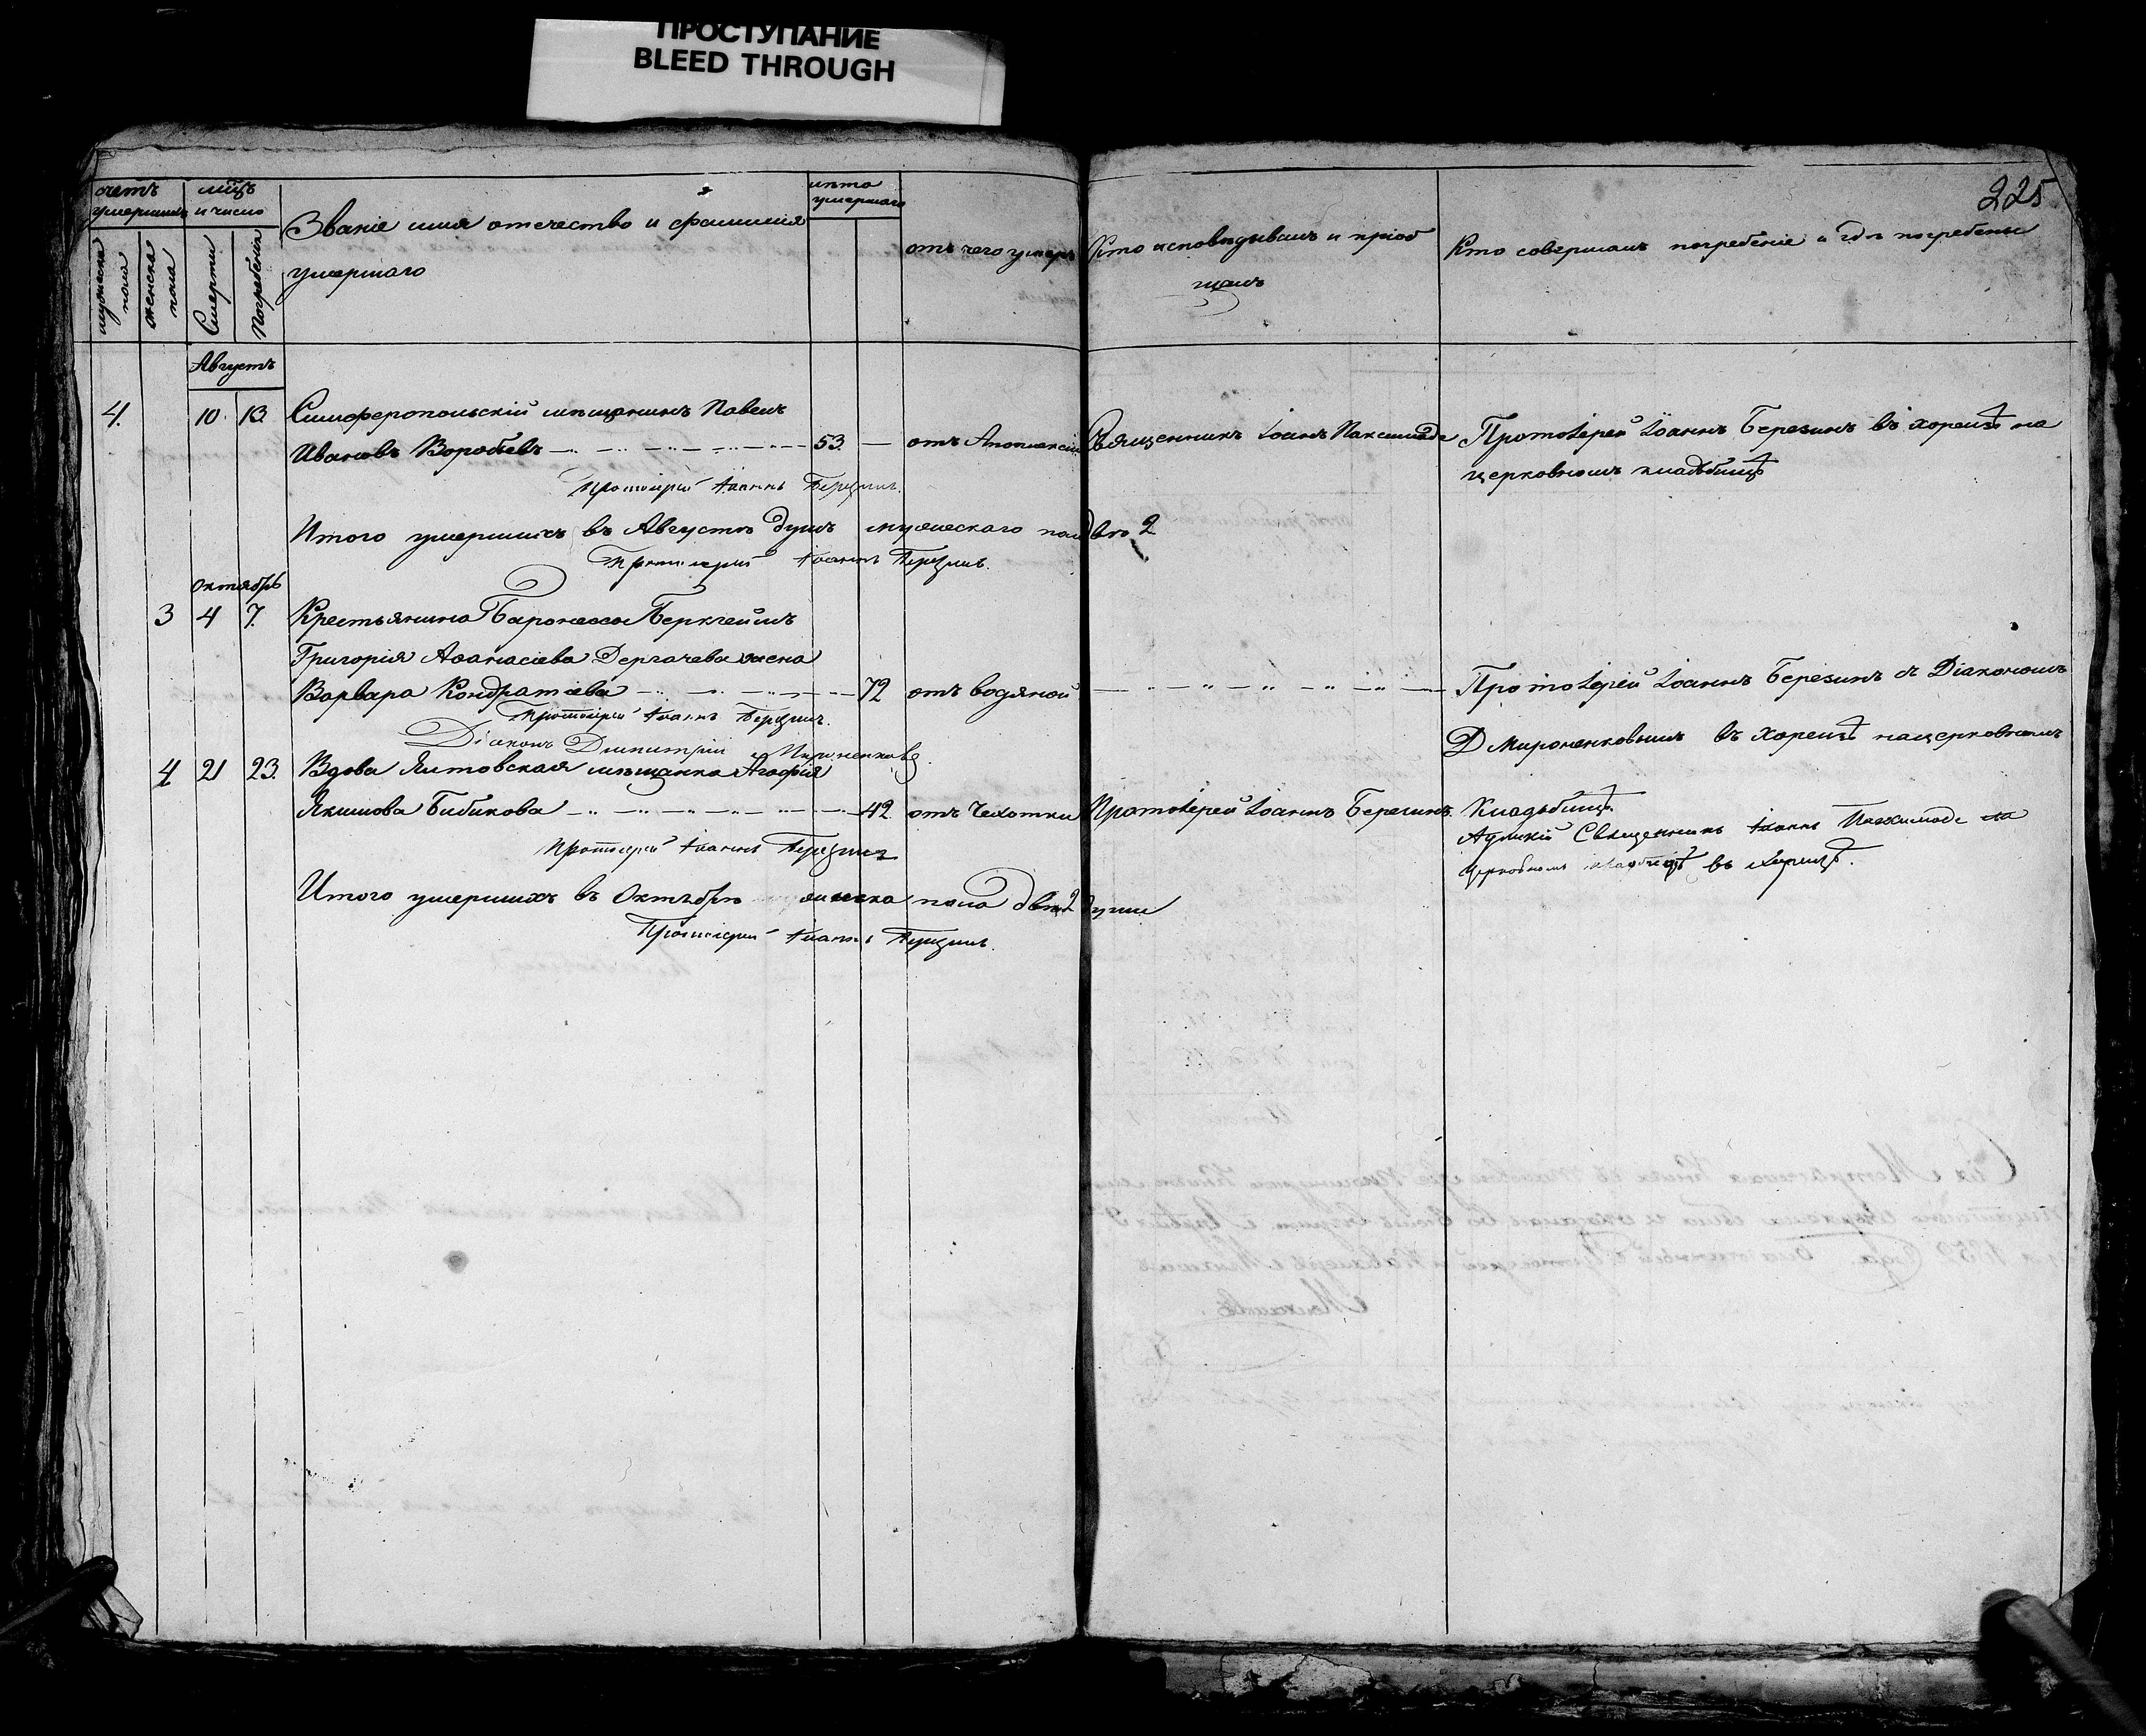 ПРОСТУПАНИЕ
BLEED THROUGH
225
счетъ умершихъ
мцъ и число
Званіе имя отечество и фамилія
умершаго
лѣта умершаго
отъ чего умеръ
Кто исповѣдывалъ и пріоб
щалъ
Кто совершалъ погребеніе и гдѣ погребены
мужеска пола
женска пола
Смерти
Погребенія
Августъ
4. 10. 13. Симферопольскій мѣщанинъ Павелъ
Ивановъ Воробьевъ 53. — отъ Апоплексіи Священникъ Іоаннъ Протоіерей Іоаннъ Березинъ въ хореизѣ на
церковномъ кладбищѣ
Протоіерей Іоаннъ Березинъ.
Итого умершихъ въ Августѣ душъ мужескаго пола двѣ 2
Протоіерей Іоаннъ Березинъ.
Октябрь
3 4 7. Крестьянина Баронессы Беркгеймъ
Григорія Аѳанасіева Дергачева жена
Варвара Кондратіева 72 отъ водяной Протоіерей Іоаннъ Березинъ съ Діакономъ
Протоіерей Іоаннъ Березинъ.
Д Мироненковымъ въ Хореизѣ нацерковномъ
Діаконъ Димитрій Мироненковъ.
4 21 23. Вдова Ялтовская мѣщанка Агафія
Якимова Бибикова 42. отъ Чехотки Протоіерей Іоаннъ Березинъ. Кладьбищѣ.
Священникъ Іоаннъ на
Протоіерей Іоаннъ Березинъ
церковномъ кладбищѣ въ Хореизѣ.
Итого умершихъ въ Октябрѣ женска пола двѣ 2 души
Протоіерей Іоаннъ Березинъ.